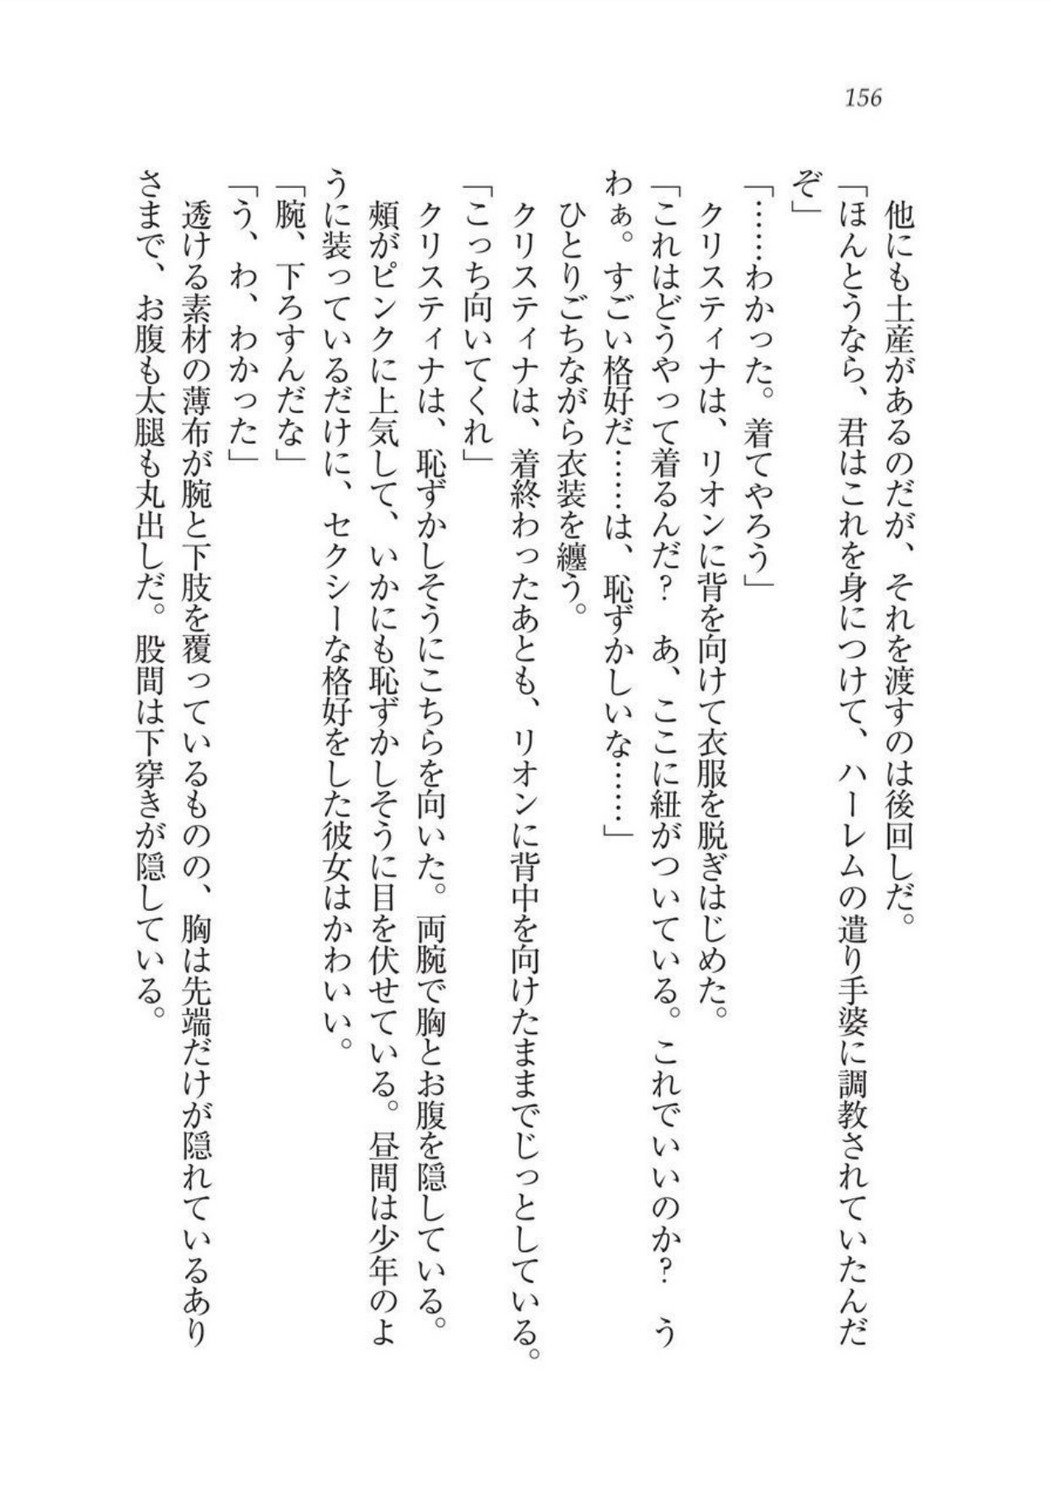 156
他にも土産があるのだが、それを渡すのは後回しだ。
「ほんとうなら、君はこれを身につけて、ハーレムの遣り手婆に調教されていたんだ
ぞ」
「……わかった。着てやろう」
クリスティナは、リオンに背を向けて衣服を脱ぎはじめた。
「これはどうやって着るんだ？　あ、ここに紐がついている。これでいいのか？　う
わぁ。すごい格好だ……は、恥ずかしいな……」
ひとりごちながら衣装を纏う。
クリスティナは、着終わったあとも、リオンに背中を向けたままでじっとしている。
「こっち向いてくれ」
クリスティナは、恥ずかしそうにこちらを向いた。両腕で胸とお腹を隠している。
頬がピンクに上気して、いかにも恥ずかしそうに目を伏せている。昼間は少年のよ
うに装っているだけに、セクシーな格好をした彼女はかわいい。
「腕、下ろすんだな」
「う、わ、わかった」
透ける素材の薄布が腕と下肢を覆っているものの、胸は先端だけが隠れているあり
さまで、お腹も太腿も丸出しだ。股間は下穿きが隠している。